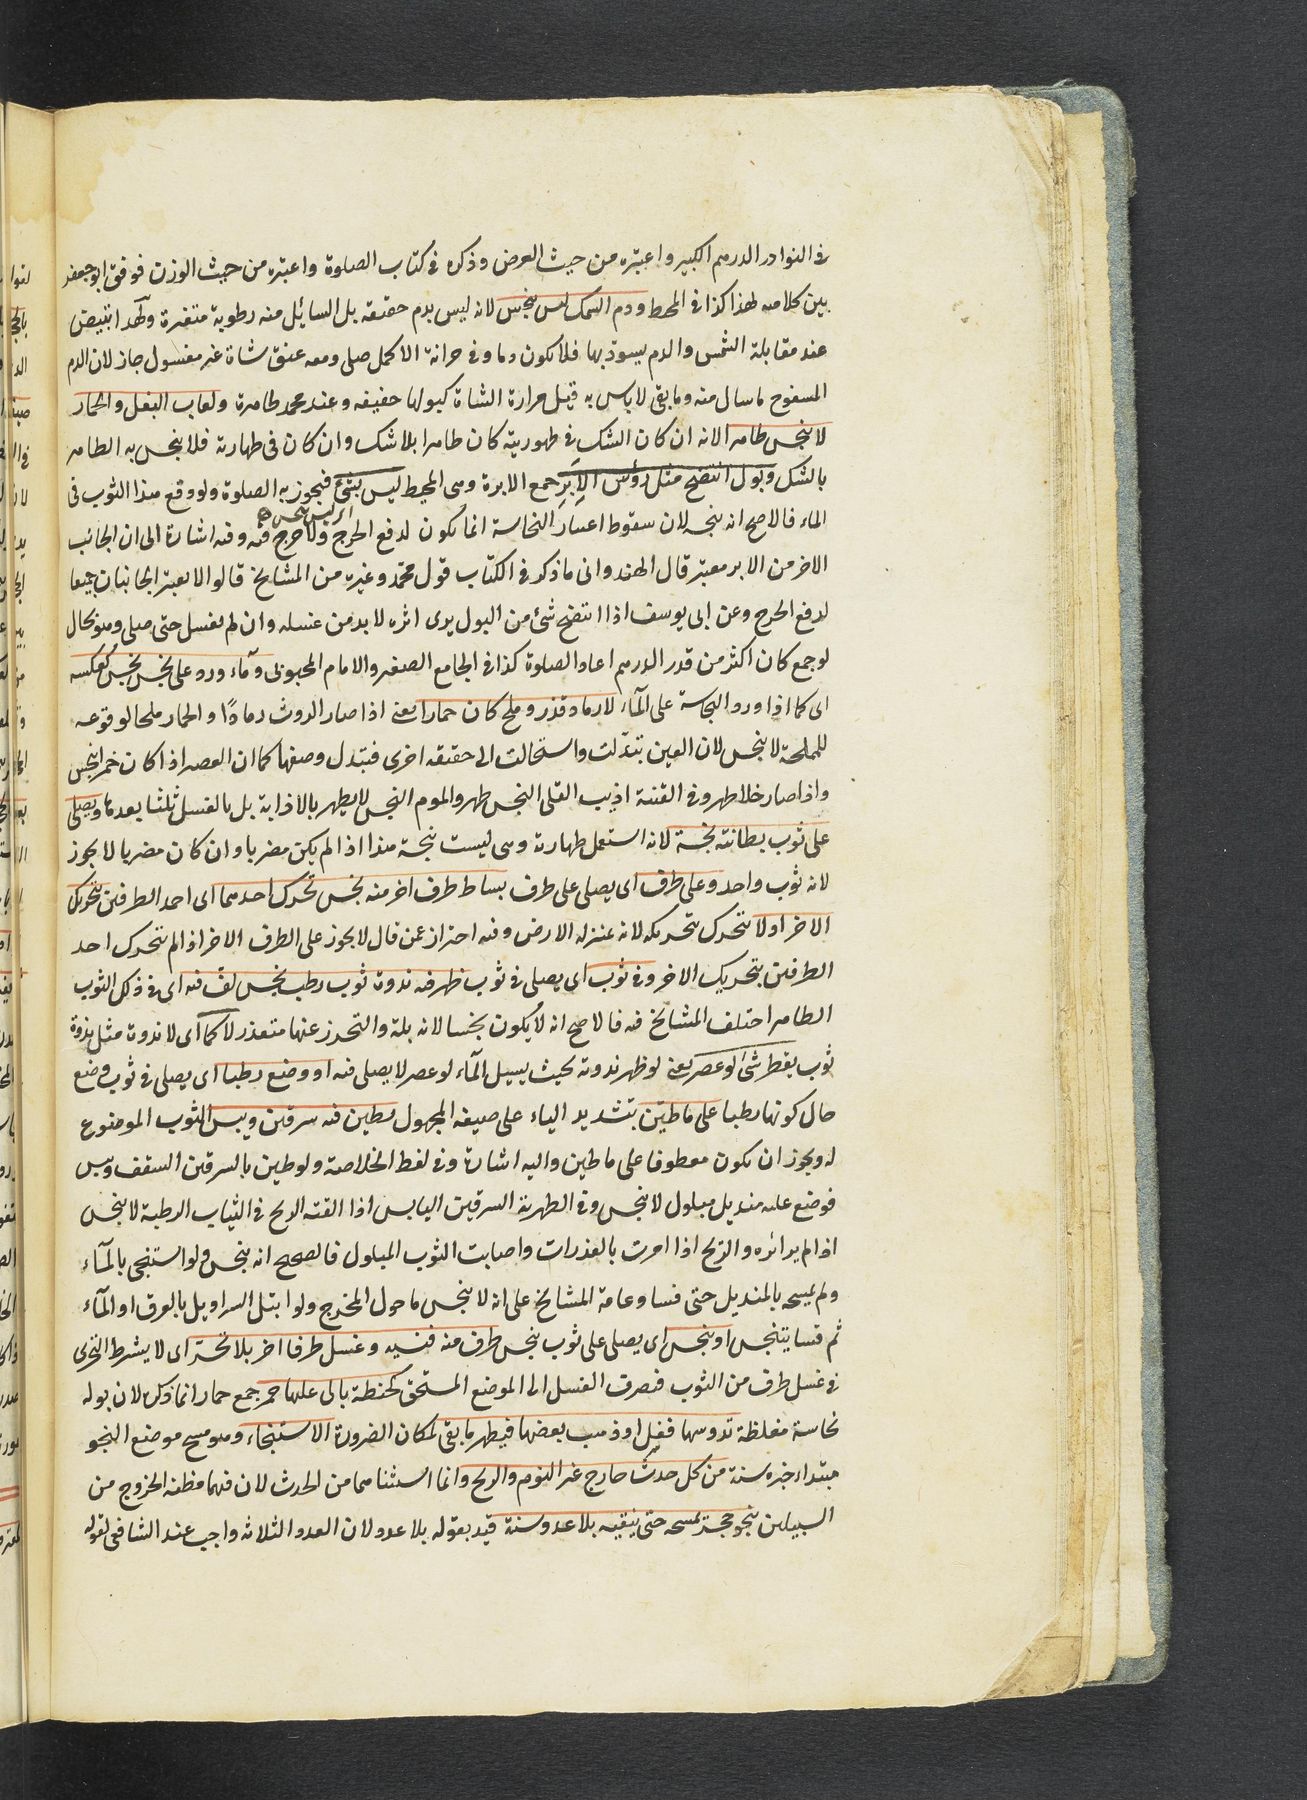 في النوادر الدرهم الكبير واعتبره من حيث العرض وذكره في كتاب الصلوة واعتبره من حيث الوزن فوفق ابو جعفر
بين كلاميه لهذا كذا في المحيط ودم السمك ليس بنجس لانه ليس بدم حقيقة بل السائل منه رطوبة متغيرة ولهذا ابتيض
عند مقابلة الشمس والدم يسود بها فلا يكون دما وفي خزانة الاكمل صلى ومعه عنق شاة غير مغسول جاز لان الدم
المسفوح ما سال منه وما بقى لا باس به قيل مرارة الشاة كبولها خفيفه وعند محمد طاهرة ولعاب البغل والحمار
لا ينجس طاهرا لانه ان كان الشك في طهوريته كان طاهرا بلا شك وان كان في طهارته فلا ينجس به الطاهر
بالشك وبول انتضح مثل رؤس الابر جمع الابرة وهي المحيط ليس بشئ فيجوز به الصلوة ولو وقع هذا الثوب في
اي ليس بنجس
الماء فالاصح انه ينجسه لان سقوط اعتبار النجاسة انما يكون لدفع الحرج ولا حرج فيه وفيه اشارة الى ان الجانب
الاخر من الابر معتبر قال الهندواني ما ذكر في الكتاب قول محمد وغيره من المشايخ قالوا لا يعتبر الجانبان جميعا
لدفع الحرج وعن ابي يوسف اذا انتضح شئ من البول يرى اثره لابد من غسله وان لم يغسل حتى صلى وهو بحال
لو جمع كان اكثر من قدر الدرهم اعاد الصلوة كذا في الجامع الصغير والامام المحبوبى وماء ورد على نجس نجس كعكسه
اى كما اذا ورد النجاسة على الماء لا رماد قذر وملح كان حمارا يعنى اذا صار الروث رمادا والحمار ملحا لوقوعه
للملحة لا ينجس لان العين تبدّلت واستحالت الى حقيقة اخرى فيتبدل وصفها كما ان العصير اذا كان خمرا ينجس
واذا صار خلا طهر وفي القنية اذيب القلى النجس طهر والموم النجس لا يطهر بالاذابة بل بالغسل ثلثا بعدها ويصلى
على ثوب بطانته نجسة لانه استعمل طهارته وهي ليست نجسة هذا اذا لم يكن مضربا وان كان مضربا لا يجوز
لانه ثوب واحد وعلى طرف اى يصلى على طرف بساط طرف اخر منه نجس تحرك احدهما اى احد الطرفين بتحريك
الاخر او لا تتحرك بتحريكه لانه بمنزلة الارض وفيه احتراز عن قال لا يجوز على الطرف الاخر اذا لم تتحرك احد
الطرفين بتحريك الاخر وفي ثوب اى يصلى في ثوب ظهر فيه ندوة ثوب رطب نجس لفّ فيه اى في ذلك الثوب
الطاهر اختلف المشايخ فيه فالاصح انه لا يكون نجسا لانه بلة والتحرز عنها متعذر لا كما اى لا ندوة مثل ندوة
ثوب يقطر شئ لو عصر يعنى لو ظهر ندوته بحيث يسيل الماء لو عصر لا يصلى فيه او وضع رطبا اى يصلى في ثوب وضع
حال كونها رطبا على ما طيّن بتشديد الياء على صيغة المجهول بطين فيه سرقين ويبس الثوب الموضوع
له ويجوز ان يكون معطوفا على ما طين واليه اشارة وفي لفظ الخلاصة ولو طين بالسرقين السقف ويبس
فوضع عليه منديل مبلول لا ينجس وفي الظهيرية السرقين اليابس اذا القته الريح في الثياب الرطبة لا ينجس
اذا لم ير اثره والريح اذا امرت بالعذرات واصابت الثوب المبلول فالصحيح انه ينجس ولو استنجى بالماء
ولم يمسحه بالمنديل حتى فسا وعامة المشايخ على انه لا ينجس ما حول المخرج ولو ابتل السراويل بالعرق او الماء
ثم فسا يتنجس او نجس اى يصلى على ثوب نجس طرف منه فنسيه وغسل طرفا اخر بلا تحرّ اى لا يشرط التحرى
في غسل طرف من الثوب فصرف الغسل الى الموضع المستحق كحنطة بالى عليها حمر جمع حمار انما ذكره لان بوله
نجاسة مغلظة تدوسها فغسل او ذهب بعضها فيطهر ما بقى لمكان الضرورة الاستنجاء وهو مسح موضع النجو
مبتداء خبره سنة من كل حدث خارج غير النوم والريح وانما استثناهما من الحدث لان فيهما مظنة الخروج من
السبيلين بنحو حجر يمسحه حتى ينقيه بلا عدد سنة قيد بقوله بلا عدد لان العدد الثلاثة واجب عند الشافعي لقوله